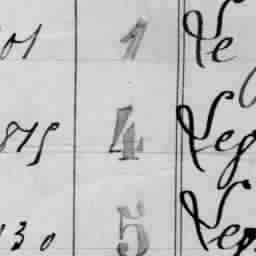 01 1 Le
875 4 Leg
130 5 Leg